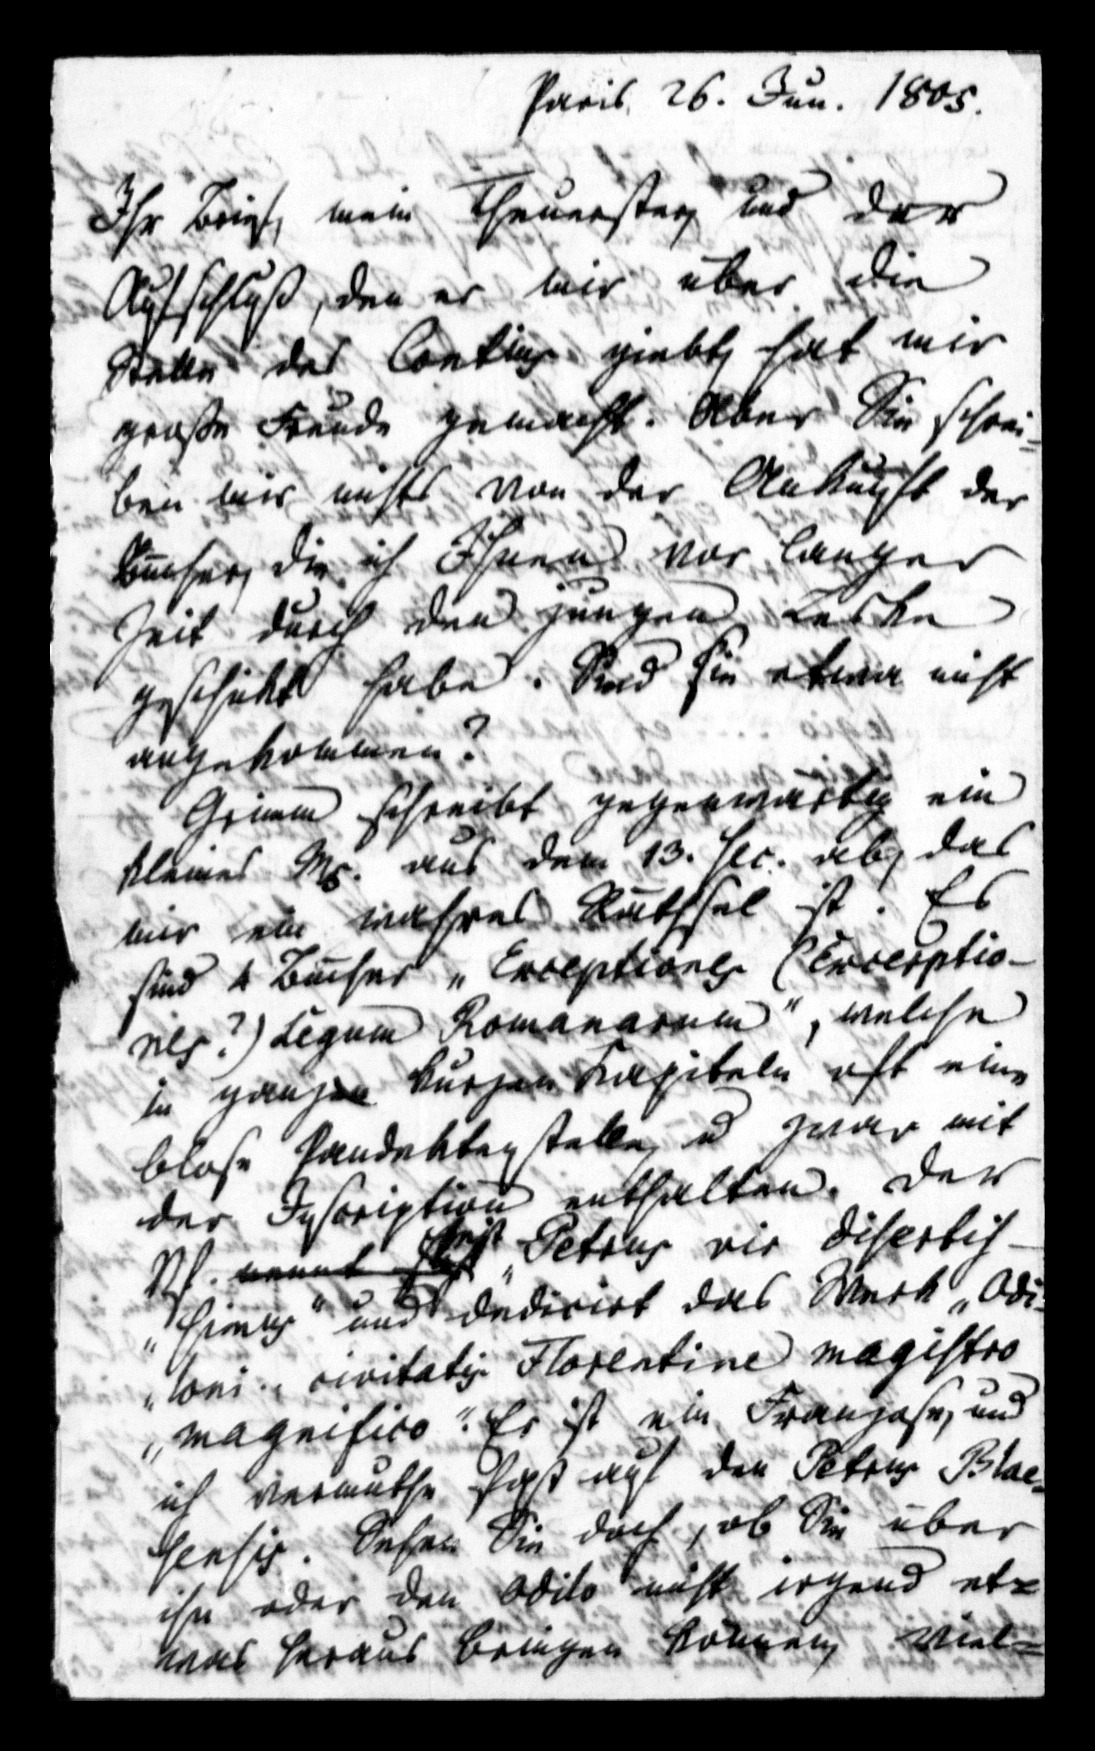 Paris 26. Jun. 1805.
Ihr Brief, mein Theuerster, und der
Aufschluß, den er mir über die
Stelle des Contius giebt, hat mir
große Freude gemacht. Aber Sie schrei-
ben mir nichts von der Ankunft der
Bücher, die ich Ihnen vor langer
Zeit durch den jungen Leske
geschikt habe. Sind sie etwa nicht
angekommen?
Grimm schreibt gegenwärtig ein
kleines Ms. aus dem 13. Sec. ab, das
mir ein wahres Räthsel ist. Es
sind 4 Bücher „Exceptiones (Excerptio-
nes?) Legum Romanarum", welche
in ganzen kurzen Kapiteln oft eine
blose Pandektenstelle, u zwar mit
der Inscription enthalten. Der
Vf. nennt sich heist „Petrus vir disertis-
„simus" und dedicirt das Werk „Odi-
„loni .. civitatis Florentine magistro
„magnifico". Er ist ein Franzose, und
ich vermuthe fast auf den Petrus Blae-
sensis. Sehen Sie doch, ob Sie über
ihn oder den Odilo nicht irgend et-
was heraus bringen können, viel-